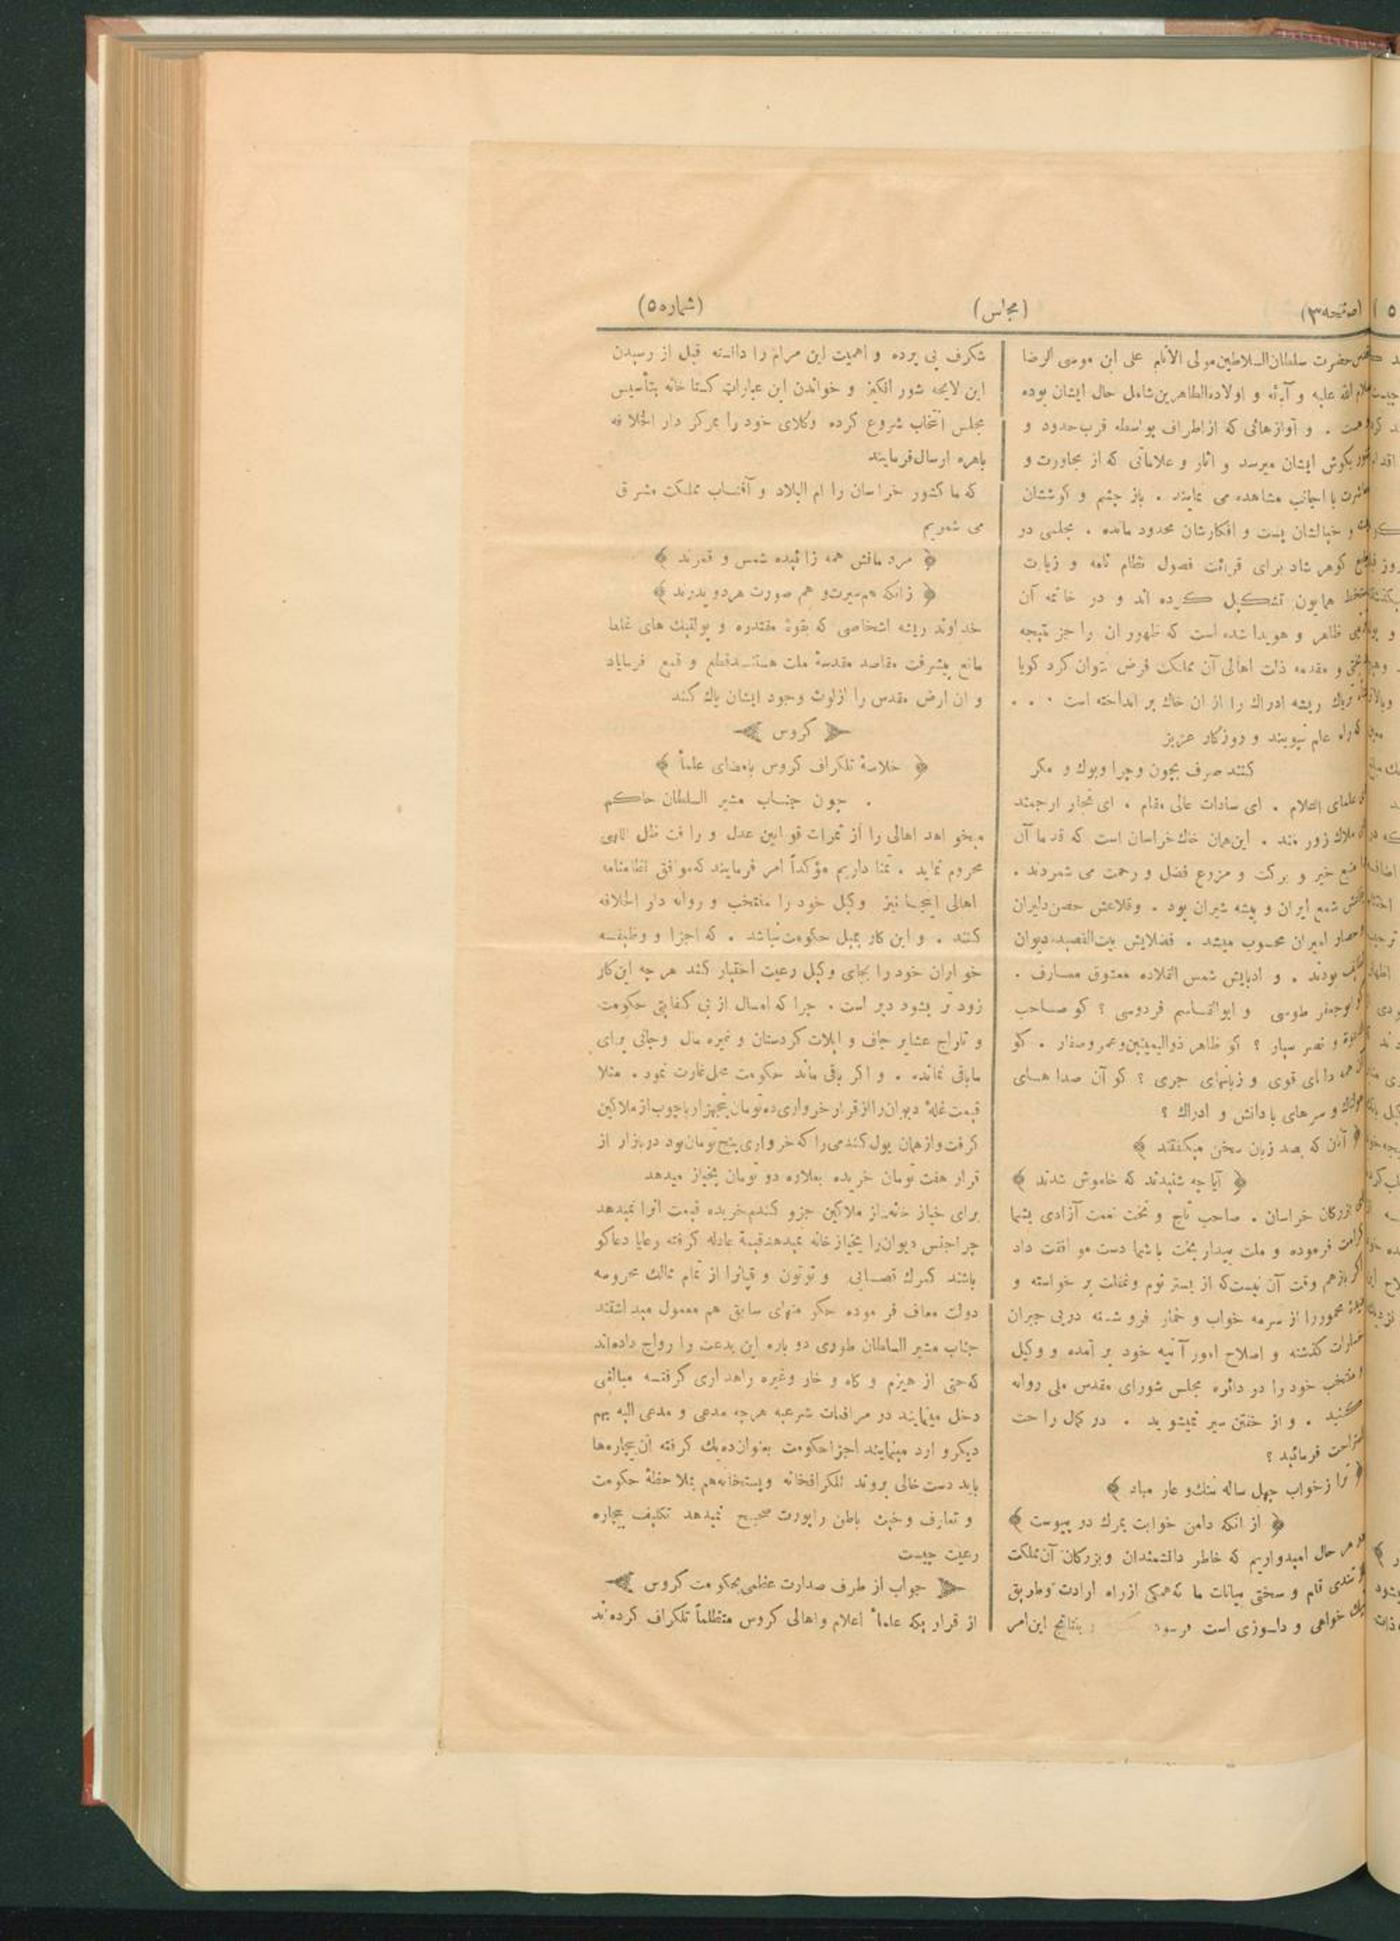 (صفحه ۳)
(مجلس)
(شماره ۵)
حضرت سلطان السلاطین مولی الانام علی ابن موسی الرضا
الله علیه و آبائه و اولاده الطاهرین شامل حال ایشان بوده
و آوازهائی که از اطراف بواسطه قرب حدود و
بکوش ایشان میرسد و اثار و علاماتی که از مجاورت و
با اجانب مشاهده می نمایند . باز چشم و کوششان
و خیالشان پست و افکارشان محدود مانده . مجلسی در
کوهر شاد برای قرائت فصول نظام نامه و زیارت
همایون تشکیل کرده اند و در خاتمه آن
ظاهر و هویدا شده است که ظهور ان را جز نتیجه
و مقدمه ذلت اهالی آن مملکت فرض نتوان کرد کویا
تریاك ریشه ادراك را از ان خاك بر انداخته است . . .
که راه علم نپویند و روزکار عزیز
کنند صرف بچون و چرا و بوك و مکر
علمای اعلام . ای سادات عالی مقام . ای تجار ارجمند
ملاك زور مند . این همان خاك خراسان است که قدما آن
منبع خیر و برکت و مزرع فضل و رحمت می شمردند .
شمع ایران و بیشه شیران بود . و قلاعش حصن دلیران
و حصار امیران محسوب میشد . فضلایش بیت القصیده دیوان
بودند . و ادبایش شمس القلاده معشوق معارف .
ابوجعفر طوسی و ابوالقاسم فردوسی ؟ کو صاحب
و نصر سیار ؟ کو طاهر ذوالیمینین و عمرو صفار . کو
همه دلهای قوی و زبانهای جری ؟ کو آن صدا های
و سر های با دانش و ادراك ؟
﴿ آنان که بصد زبان سخن میکفتند ﴾
﴿ آیا چه شنیدند که خاموش شدند ﴾
بزرکان خراسان . صاحب تاج و تخت نعمت آزادی بشما
کرامت فرموده و ملت بیدار بخت با شما دست موافقت داد
اکر بازهم وقت آن نیست که از بستر نوم و غفلت بر خواسته و
دیدۀ مخمور را از سرمه خواب و خمار فرو شسته درپی جبران
خسارات کذشته و اصلاح امور آتیه خود بر آمده و وکیل
منتخب خود را در دائره مجلس شورای مقدس ملی روانه
کنید . و از خفتن سیر نمیشوید . در کمال راحت
استراحت فرمائید ؟
﴿ ترا زخواب چهل ساله ننك و عار مباد ﴾
﴿ از انکه دامن خوابت بمرك در پیوست ﴾
در هر حال امیدواریم که خاطر دانشمندان و بزرکان آن مملکت
از تندی قلم و سختی بیانات ما که همکی از راه ارادت و طریق
نیك خواهی و دلسوزی است بنتایج این امر
شکرف پی برده و اهمیت این مرام را دانسته قبل از رسیدن
این لایحه شور انکیز و خواندن این عبارات کستاخانه بتأسیس
مجلس انتخاب شروع کرده وکلای خود را بمرکز دار الخلافه
باهره ارسال فرمایند
که ما کشور خراسان را ام البلاد و آفتاب مملکت مشرق
می شمریم
﴿ مرد مانش همه زائیده شمس و قمرند ﴾
﴿ زانکه هم سیرت و هم صورت هردو پدرند ﴾
خداوند ریشه اشخاصی که بقوۀ مقتدره و پولتیك های غلط
مانع پیشرفت مقاصد مقدسۀ ملت هستند قطع و قمع فرماید
و ان ارض مقدس را ازلوث وجود ایشان پاك کند
کروس
﴿ خلاصۀ تلکراف کروس بامضای علماً ﴾
چون جناب مشیر السلطان حاکم
میخواهد اهالی را از ثمرات قوانین عدل و رافت ظل الهی
محروم نماید . تمنا داریم مؤکداً امر فرمایند که موافق نظامنامه
اهالی اینجا نیز وکیل خود را منتخب و روانه دار الخلافه
کنند . و این کار بمیل حکومت نباشد . که اجزا و وظیفه
خواران خود را بجای وکیل رعیت اختیار کند هر چه این کار
زود تر بشود دیر است . چرا که امسال از بی کفایتی حکومت
و تاراج عشایر جاف و ایلات کردستان و غیره مال و جانی برای
ماباقی نمانده . و اکر باقی ماند حکومت محل غارت نمود . مثلا
قیمت غلۀ دیوان را از قرار خرواری ده تومان پنجهزار با چوب از ملاکین
کرفت و از همان پول کندمی را که خرواری پنج تومان بود در بازار از
قرار هفت تومان خریده بعلاوه دو تومان بخباز میدهد
برای خباز خانه از ملاکین جزو کندم خریده قیمت انرا نمیدهد
چرا جنس دیوان را بخبازخانه نمیدهد قیمة عادله کرفته رعایا دعاکو
باشند کمرك قصابی و توتون و قپانرا از تمام ممالك محروسه
دولت معاف فرموده حکم منهای سابق هم معمول میداشتند
جناب مشیر السلطان طروی دو باره این بدعت را رواج داده اند
که حتی از هیزم و کاه و خار وغیره راهداری کرفته مبالغی
دخل مینمایند در مرافعات شرعیه هرچه مدعی و مدعی الیه بهم
دیکر وارد مینمایند اجزا حکومت بعنوان ده یك کرفته آن بیچاره ها
باید دست خالی بروند تلکرافخانه و پستخانه هم بملاحظۀ حکومت
و تعارف و خبث باطن راپورت صحیح نمیدهد تکلیف بیچاره
رعیت چیست
جواب از طرف صدارت عظمی بحکومت کروس
از قرار یکه علماء اعلام و اهالی کروس متظلماً تلکراف کرده اند